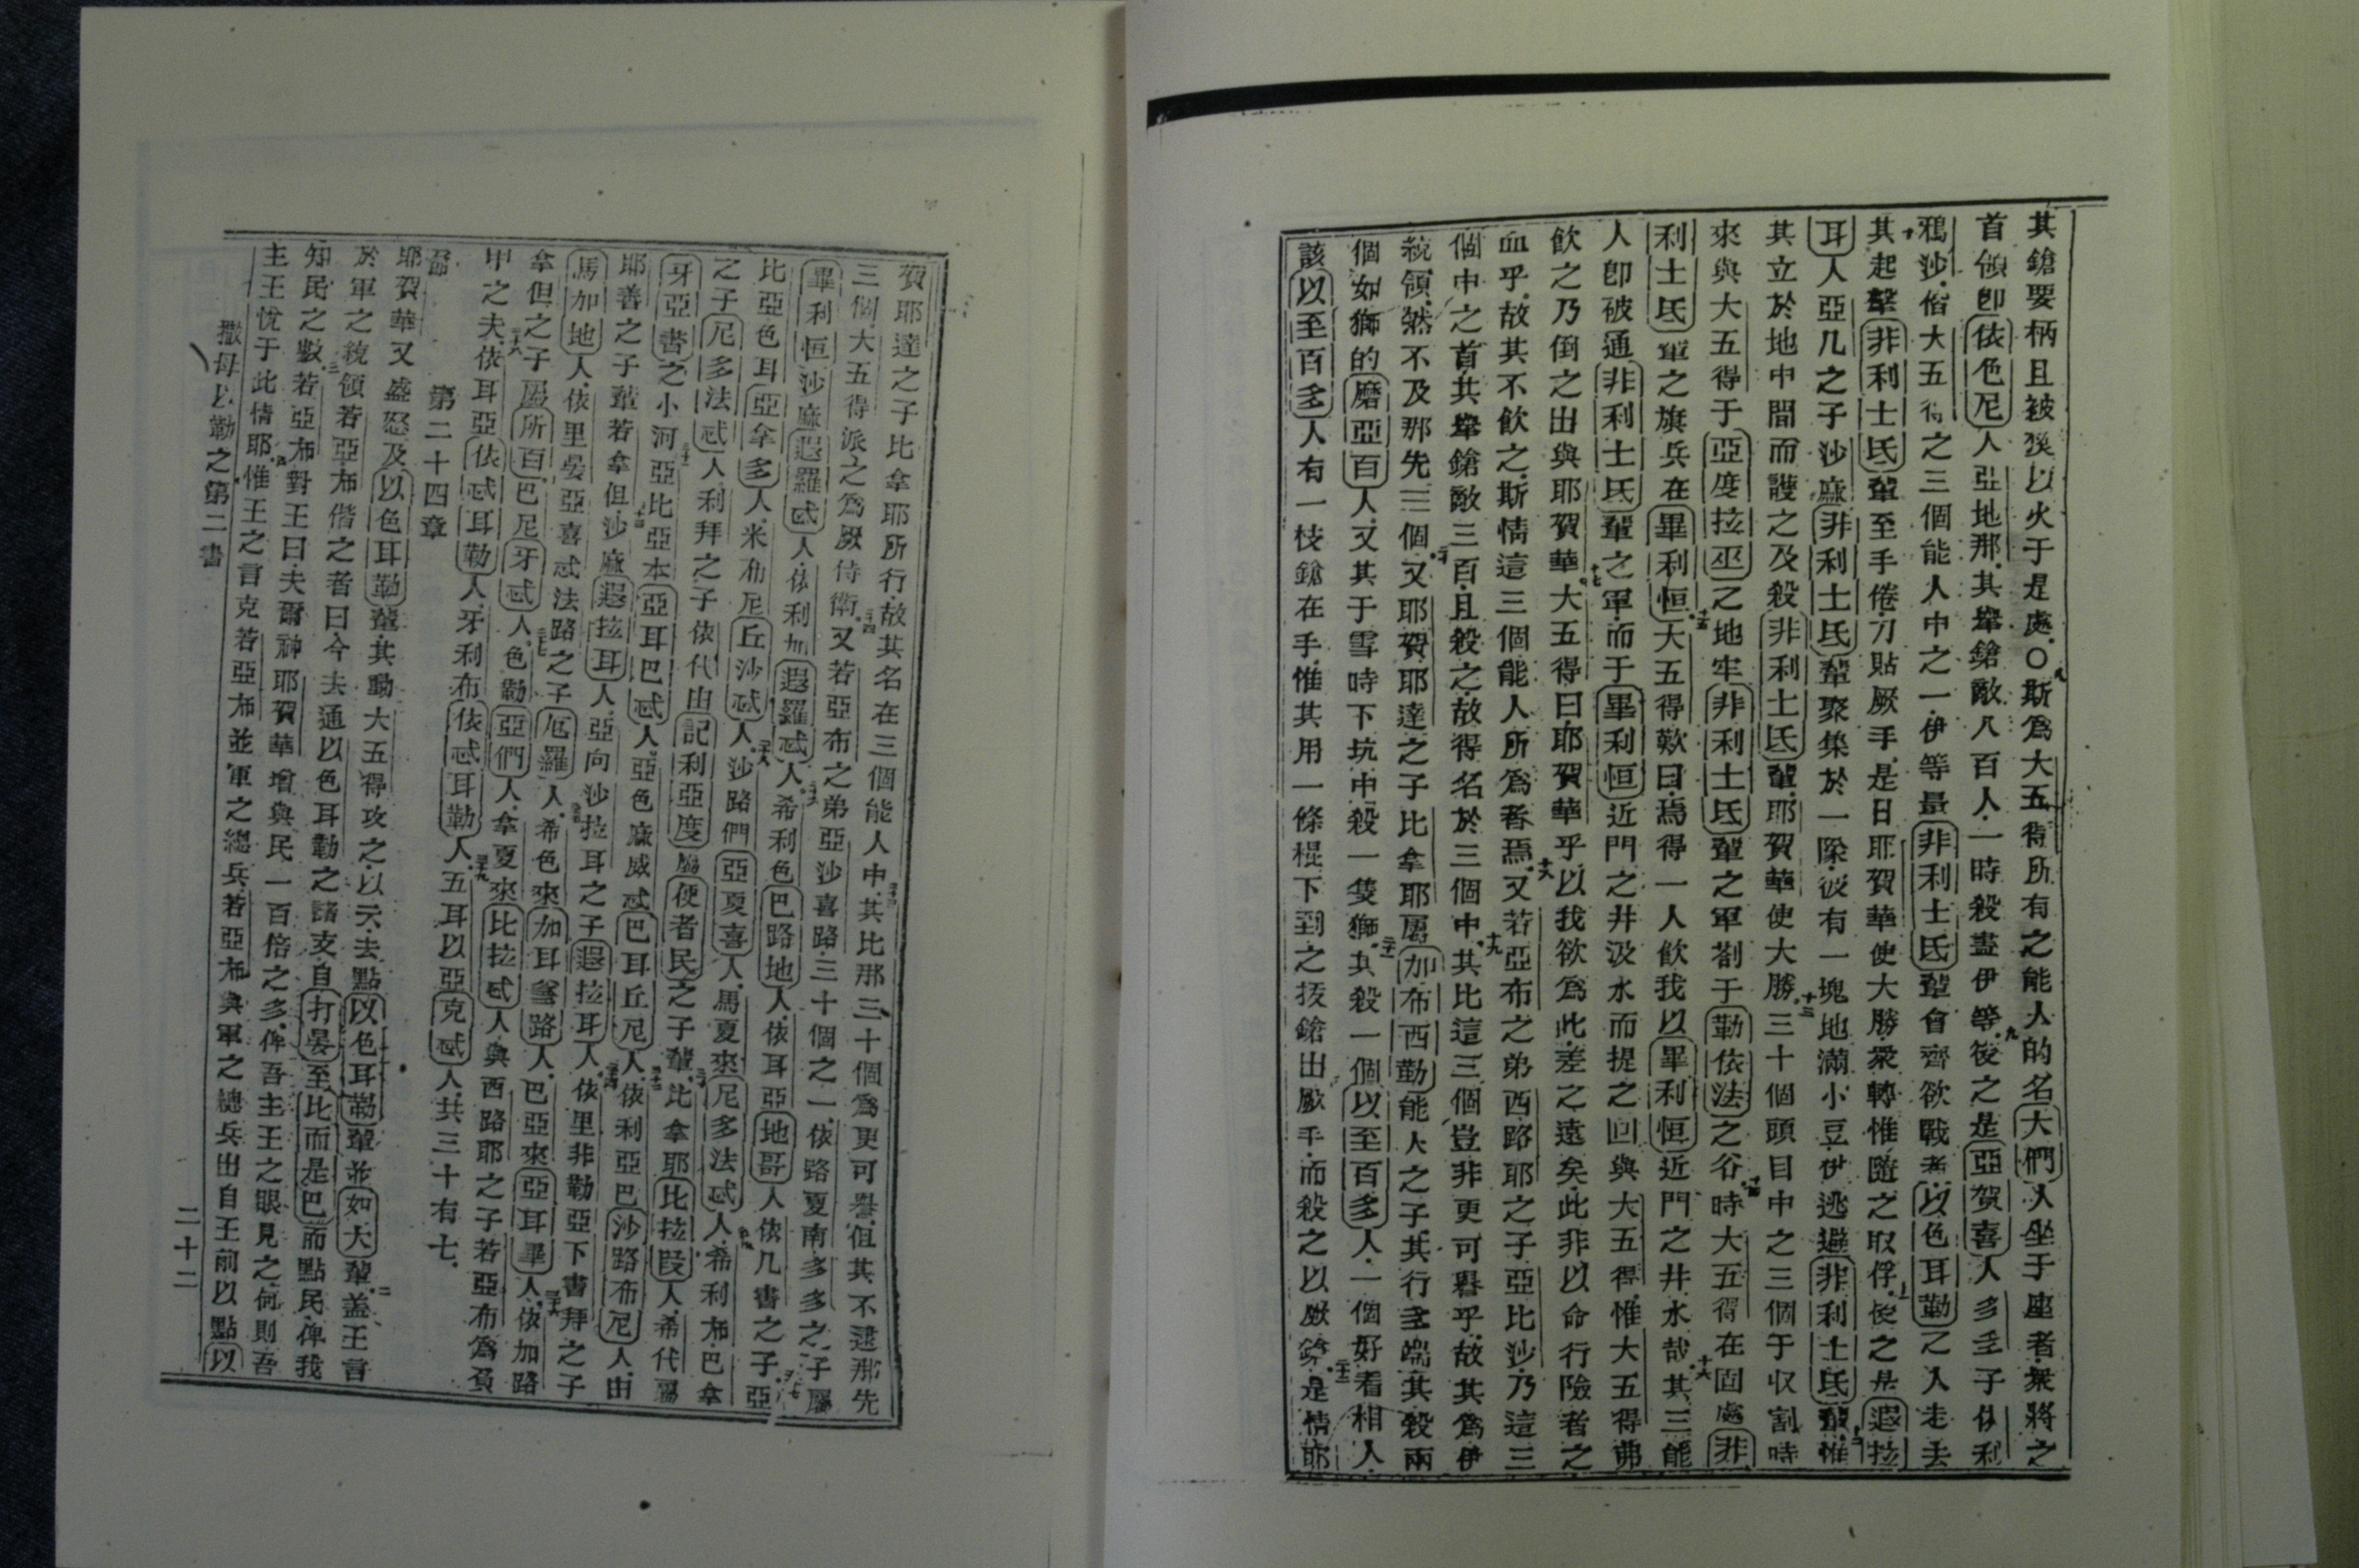 其鎗要柄且被𡚒以火于是處○斯為大五得所有之能人的名大們人坐于座者衆將之
首領卽依色尼人亞地那其舉鎗敵八百人一時殺盡伊等後之是亞賀喜人多多子依利
鴉沙偕大五得之三個能人中之一伊等量非利士氐輩會齊欲戰者以色耳勒之人走去
其起擊非利士氐輩至手倦刀貼厥手是日耶賀華使大勝衆轉惟隨之取俘後之是遐拉
耳人亞几之子沙麻非利士氐輩聚集於一隊彼有一塊地滿小豆伊逃避非利士氐輩惟
其立於地中間而護之及殺非利士氐輩耶賀華使大勝三十個頭目中之三個于収割時
來與大五得于亞度拉巫之地牢非利士氐輩之軍劄于勒依法之谷時大五得在固處非
利士氐軍之旗兵在畢利恒大五得歎曰焉得一人飲我以畢利恒近門之井水哉其三能
人卽被通非利士氐輩之軍而于畢利恒近門之井汲水而提之回與大五得惟大五得弗
飲之乃倒之出與耶賀華大五得曰耶賀華乎以我欲為此差之遠矣此非以命行險者之
血乎故其不飲之斯情這三個能人所為者焉又若亞布之弟西路耶之子亞比沙乃這三
個中之首其舉鎗敵三百且殺之故得名於三個中其比這三個豈非更可譽乎故其為伊
統領然不及那先三個又耶賀耶達之子比拿耶屬加布西勒能人之子其行多端其殺兩
個如獅的磨亞百人又其于雪時下坑中殺一隻獅其殺一個以至百多人一個好看相人
該以至百多人有一枝鎗在手惟其用一條棍下到之抜鎗出厥手而殺之以厥鎗是情耶
賀耶達之子比拿耶所行故其名在三個能人中其比那三十個為更可譽但其不逮那先
三個大五得派之為厥侍衛又若亞布之弟亞沙喜路三十個之一依路夏南多多之子屬
畢利恒沙麻遐羅忒人依利加遐羅忒人希利色巴路地人依耳亞地哥人依几書之子亞
比亞色耳亞拿多人米布尼丘沙忒人沙路們亞夏喜人馬夏來尼多法忒人希利布巴拿
之子尼多法忒人利拜之子依代由記利亞度屬便者民之子輩比拿耶比拉段人希代屬
牙亞書之小河亞比亞本亞耳巴忒人亞色麻威忒巴耳丘尼人依利亞巴沙路布尼人由
耶善之子輩若拿但沙麻遐拉耳人亞向沙拉耳之子遐拉耳人依里非勒亞下書拜之子
馬加地人依里晏亞喜忒法路之子厄羅人希色來加耳𦍒路人巴亞來亞耳畢人依加路
拿但之子屬所百巴尼牙忒人色勒亞們人拿夏來比拉忒人與西路耶之子若亞布為負
甲之夫依耳亞依忒耳勒人牙利布依忒耳勒人五耳以亞克忒人共三十有七
第二十四章
耶賀華又盛怒及以色耳勒輩其動大五得攻之以云去點以色耳勒輩並如大輩蓋王言
於軍之統領若亞布偕之者曰今去通以色耳勒之諸支自打晏至比而是巴而點民俾我
知民之數若亞布對王曰夫爾神耶賀華增與民一百倍之多俾吾主王之眼見之何則吾
主王悅于此情耶惟王之言克若亞布並軍之總兵若亞布與軍之總兵出自王前以點以
撒母以勒之第二書
二十二